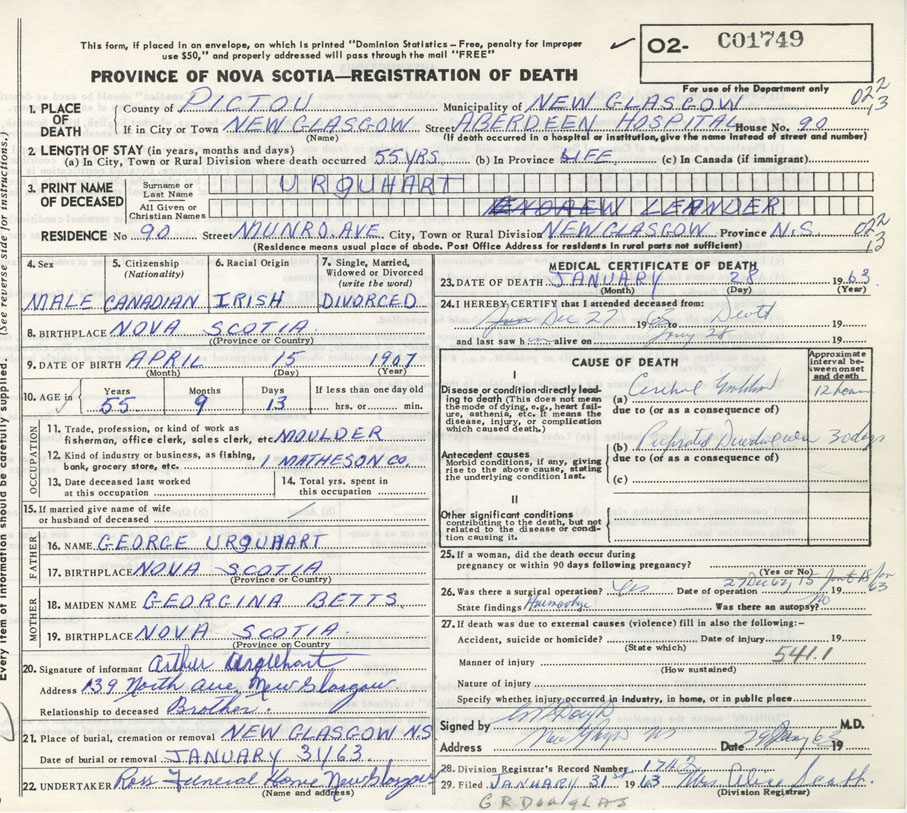 This form, if placed in an envelope, on which is printed "Dominion Statistics – Free, penalty for improper
use $50," and properly addressed will pass through the mail "FREE"
✓ O2- C01749
PROVINCE OF NOVA SCOTIA—REGISTRATION OF DEATH
For use of the Department only
022
13
1. PLACE OF DEATH
County of PICTOU Municipality of NEW GLASGOW
If in City or Town NEW GLASGOW Street ABERDEEN HOSPITAL House No. 90
(Name) (If death occurred in a hospital or institution, give the name instead of street and number)
2. LENGTH OF STAY (in years, months and days)
(a) In City, Town or Rural Division where death occurred 55 YRS. (b) In Province LIFE (c) In Canada (if immigrant)
3. PRINT NAME OF DECEASED
Surname or Last Name URQUHART
All Given or Christian Names ANDREW LEANDER
RESIDENCE No 90 Street MUNRO. AVE. City, Town or Rural Division NEW GLASGOW Province N.S.
022
13
(Residence means usual place of abode. Post Office Address for residents in rural parts not sufficient)
4. Sex MALE
5. Citizenship (Nationality) CANADIAN
6. Racial Origin IRISH
7. Single, Married, Widowed or Divorced (write the word) DIVORCED
8. BIRTHPLACE NOVA SCOTIA
(Province or Country)
9. DATE OF BIRTH APRIL 15 1907
(Month) (Day) (Year)
10. AGE in Years 55 Months 9 Days 13 If less than one day old hrs. or min.
OCCUPATION
11. Trade, profession, or kind of work as
fisherman, office clerk, sales clerk, etc. MOULDER
12. Kind of industry or business, as fishing,
bank, grocery store, etc. I MATHESON CO.
13. Date deceased last worked at this occupation
14. Total yrs. spent in this occupation
15. If married give name of wife
or husband of deceased
FATHER
16. NAME GEORGE URQUHART
17. BIRTHPLACE NOVA SCOTIA
(Province or Country)
MOTHER
18. MAIDEN NAME GEORGINA BETTS.
19. BIRTHPLACE NOVA SCOTIA.
(Province or Country)
20. Signature of informant Arthur Urquhart
Address 139 North Ave, New Glasgow
Relationship to deceased Brother.
21. Place of burial, cremation or removal NEW GLASGOW N.S
Date of burial or removal JANUARY 31/63.
22. UNDERTAKER Ross Funeral Home New Glasgow
(Name and address)
MEDICAL CERTIFICATE OF DEATH
23. DATE OF DEATH JANUARY 28 1963
(Month) (Day) (Year)
24. I HEREBY CERTIFY that I attended deceased from:
Dec 27 19 to 19
and last saw h alive on 28 19
CAUSE OF DEATH
Approximate interval between onset and death
I
Disease or condition directly leading to death (This does not mean the mode of dying, e.g., heart failure, asthenia, etc. It means the disease, injury, or complication which caused death.)
(a) 12 hours
due to (or as a consequence of)
Antecedent causes
Morbid conditions, if any, giving rise to the above cause, stating the underlying condition last.
(b) 30 days
due to (or as a consequence of)
(c)
II
Other significant conditions
contributing to the death, but not related to the disease or condition causing it.
25. If a woman, did the death occur during
pregnancy or within 90 days following pregnancy?
(Yes or No)
26. Was there a surgical operation? Yes Date of operation 27 Dec 62, 15 Jan 63
State findings Was there an autopsy? No
27. If death was due to external causes (violence) fill in also the following:–
Accident, suicide or homicide? Date of injury 19
(State which)
541.1
Manner of injury
(How sustained)
Nature of injury
Specify whether injury occurred in Industry, in home, or in public place
Signed by M.D.
Address Date 29 Jany 63 19
28. Division Registrar's Record Number 1742
29. Filed JANUARY 31st 1963
(Division Registrar)
G.R. DOUGLAS
Every item of information should be carefully supplied. (See reverse side for instructions.)